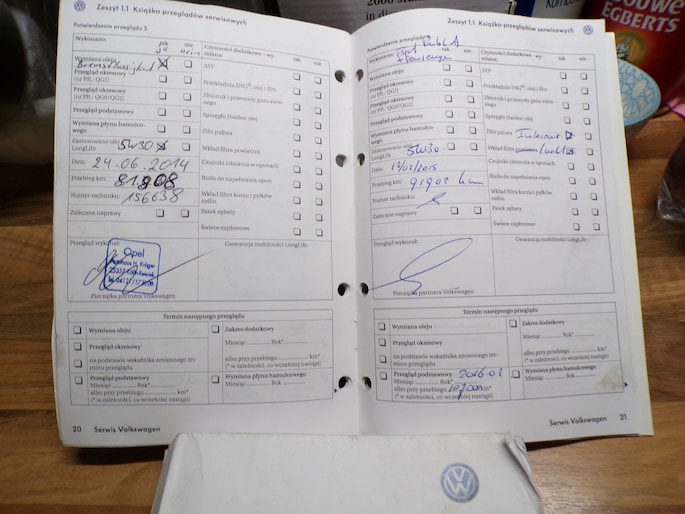 Zeszyt 1.1 Książka przeglądów serwisowych
Potwierdzenie przeglądu 5
Wykonano:
tak
nie
ja
nein
Czynności dodatkowe - wy-
miana:
tak
nie
Wymiana oleju
Bremsflüssigkeit
Przegląd okresowy
(nr PR.: QG1)
Przegląd okresowy
(nr PR.: QG0/QG2)
Przegląd podstawowy
Wymiana płynu hamulco-
wego
Zastosowano olej
LongLife
5W30
Data:
24.06.2014
Przebieg km:
Numer rachunku:
156638
Zalecane naprawy
ATF
Przekładnia DSG®: olej i filtr
Zbiornik i przewody gazu ziem.
Sprzęgło Haldex: olej
Filtr paliwa
Wkład filtra powietrza
Czujniki ciśnienia w oponach
Butla do napełniania opon
Wkład filtra kurzu i pyłków
roślin
Pasek zębaty
Świece zapłonowe
Przegląd wykonał:
Gwarancja mobilności LongLife
Opel
Pieczątka partnera Volkswagen
Termin następnego przeglądu
Wymiana oleju
Przegląd okresowy
na podstawie wskaźnika zmiennego ter-
minu przeglądu
Przegląd podstawowy
Miesiąc Rok*
albo przy przebiegu km*
(* w zależności, co wcześniej nastąpi)
Zakres dodatkowy
Miesiąc Rok*
albo przy przebiegu km*
(* w zależności, co wcześniej nastąpi)
Wymiana płynu hamulcowego
Miesiąc Rok*
20 Serwis Volkswagen
Zeszyt 1.1 Książka przeglądów serwisowych
Potwierdzenie przeglądu
Wykonano:
tak
nie
Czynności dodatkowe - wy-
miana:
tak
nie
Wymiana oleju
Przegląd okresowy
(nr PR.: QG1)
Przegląd okresowy
(nr PR.: QG0/QG2)
Przegląd podstawowy
Wymiana płynu hamulco-
wego
Zastosowano olej
LongLife
5W30
Data:
13/02/2015
Przebieg km:
91902 km
Numer rachunku:
Zalecane naprawy
ATF
Przekładnia DSG®: olej i filtr
Zbiornik i przewody gazu ziem.
Sprzęgło Haldex: olej
Filtr paliwa
Wkład filtra
Czujniki ciśnienia w oponach
Butla do napełniania opon
Wkład filtra kurzu i pyłków
roślin
Pasek zębaty
Świece zapłonowe
Przegląd wykonał:
Gwarancja mobilności LongLife
Pieczątka partnera Volkswagen
Termin następnego przeglądu
Wymiana oleju
Przegląd okresowy
na podstawie wskaźnika zmiennego ter-
minu przeglądu
Przegląd podstawowy
2016-02
Miesiąc Rok*
albo przy przebiegu km*
(* w zależności, co wcześniej nastąpi)
Zakres dodatkowy
Miesiąc Rok*
albo przy przebiegu km*
(* w zależności, co wcześniej nastąpi)
Wymiana płynu hamulcowego
Miesiąc Rok*
Serwis Volkswagen 21
EGBERTS